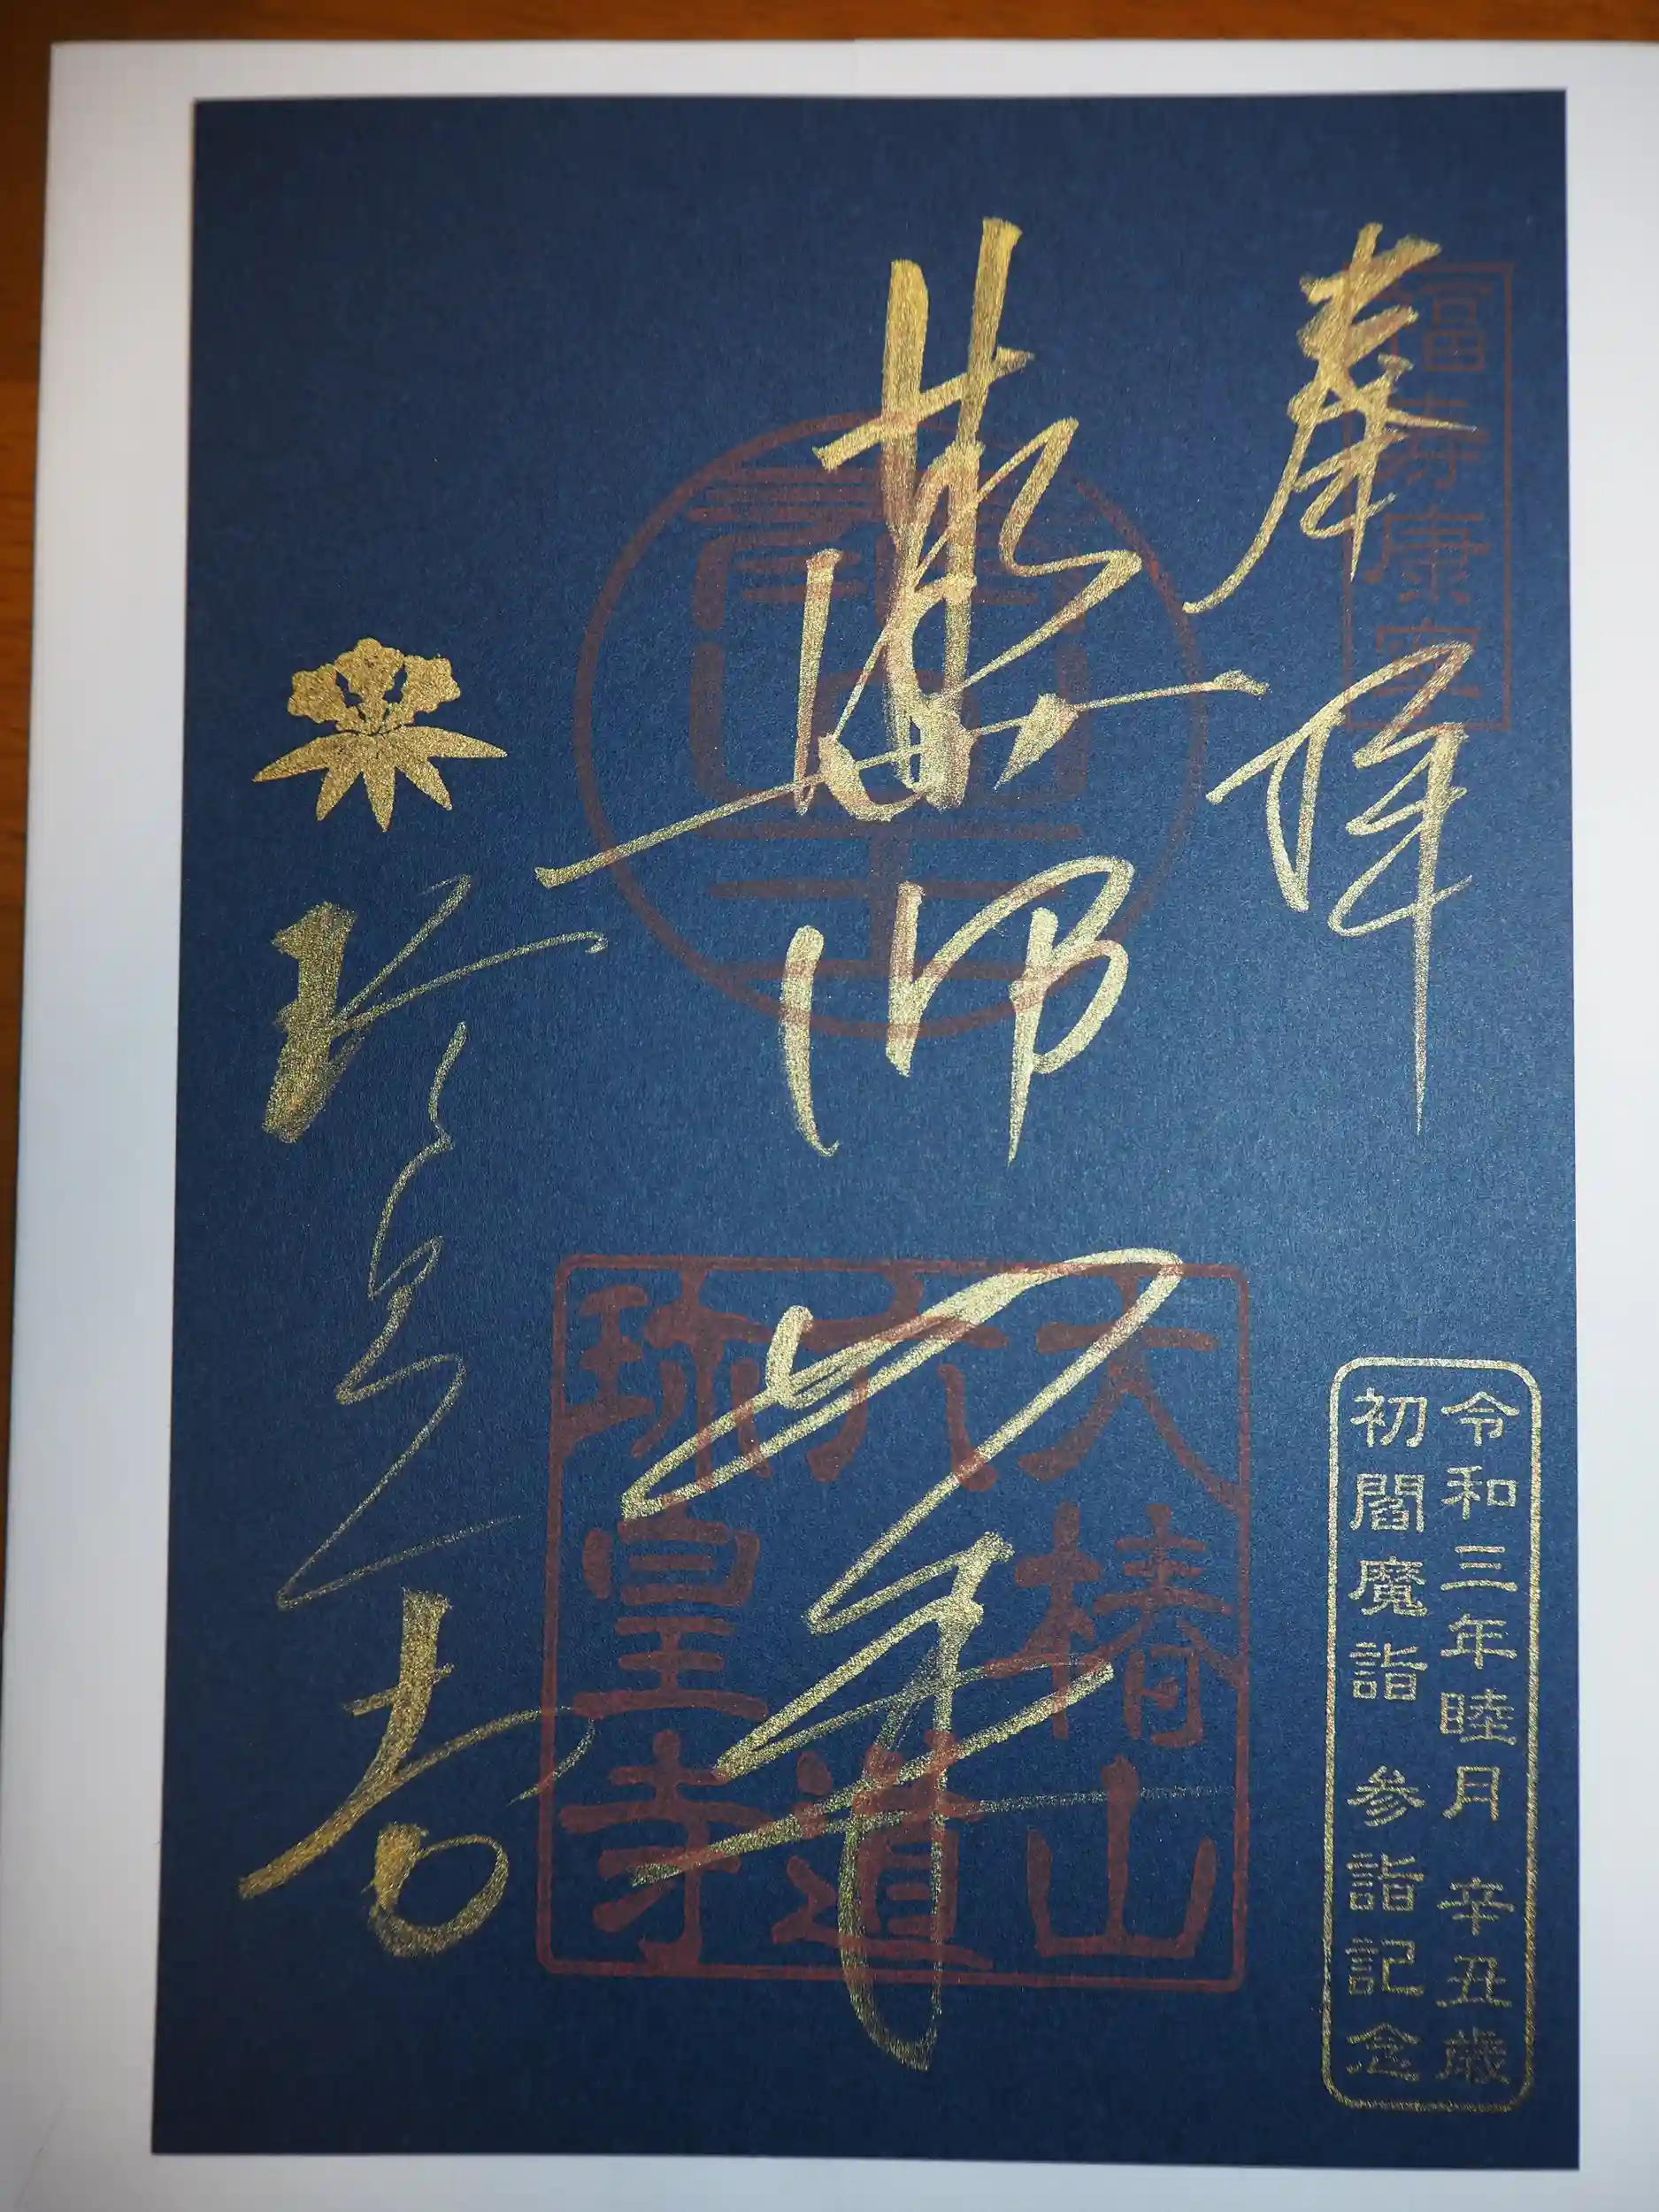 福寿康寧
奉拝
令和三年睦月 辛丑歳
初閻魔詣 参詣記念
薬師如来
大椿山
六道
珎皇寺
珍皇寺